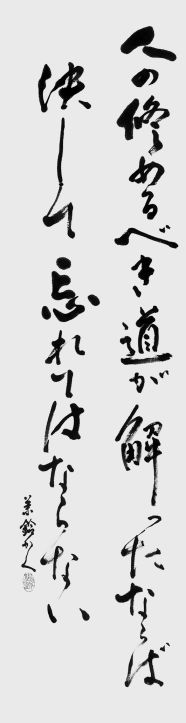 人の修めるべき道が解ったならば
決して忘れてはならない